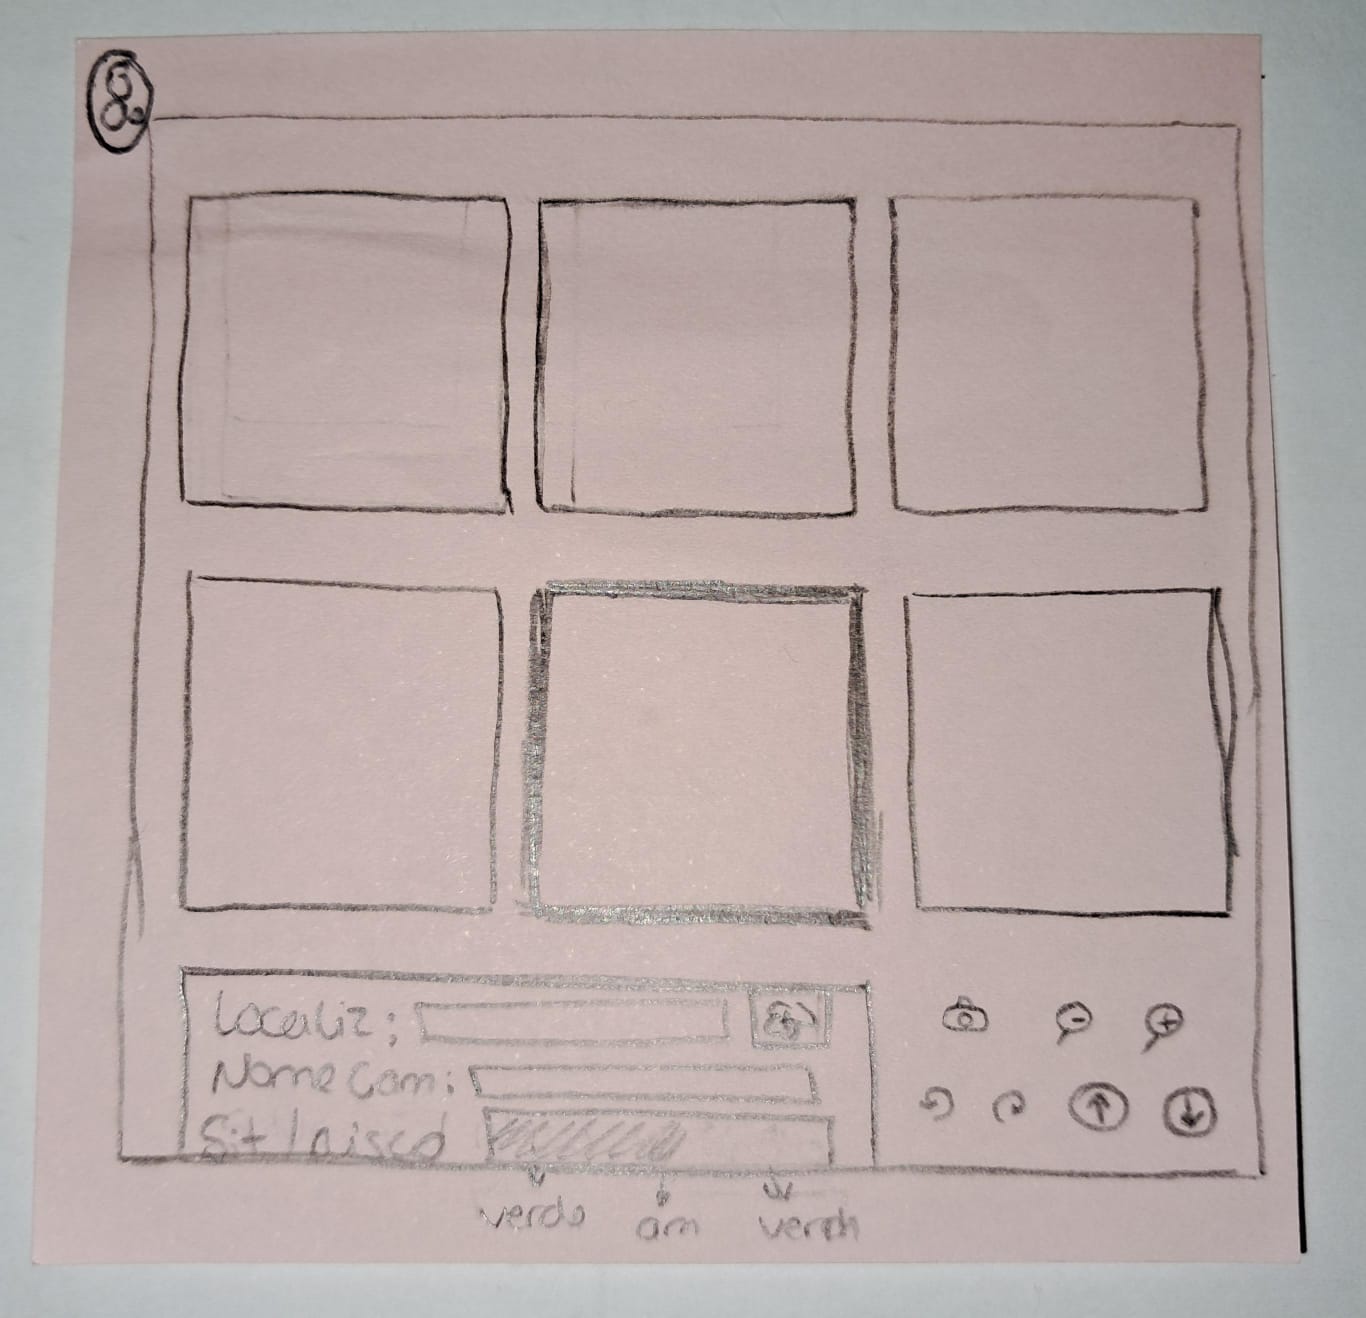 8.
Localiz:
Nome Cam:
Sit/Risco
verde am verm